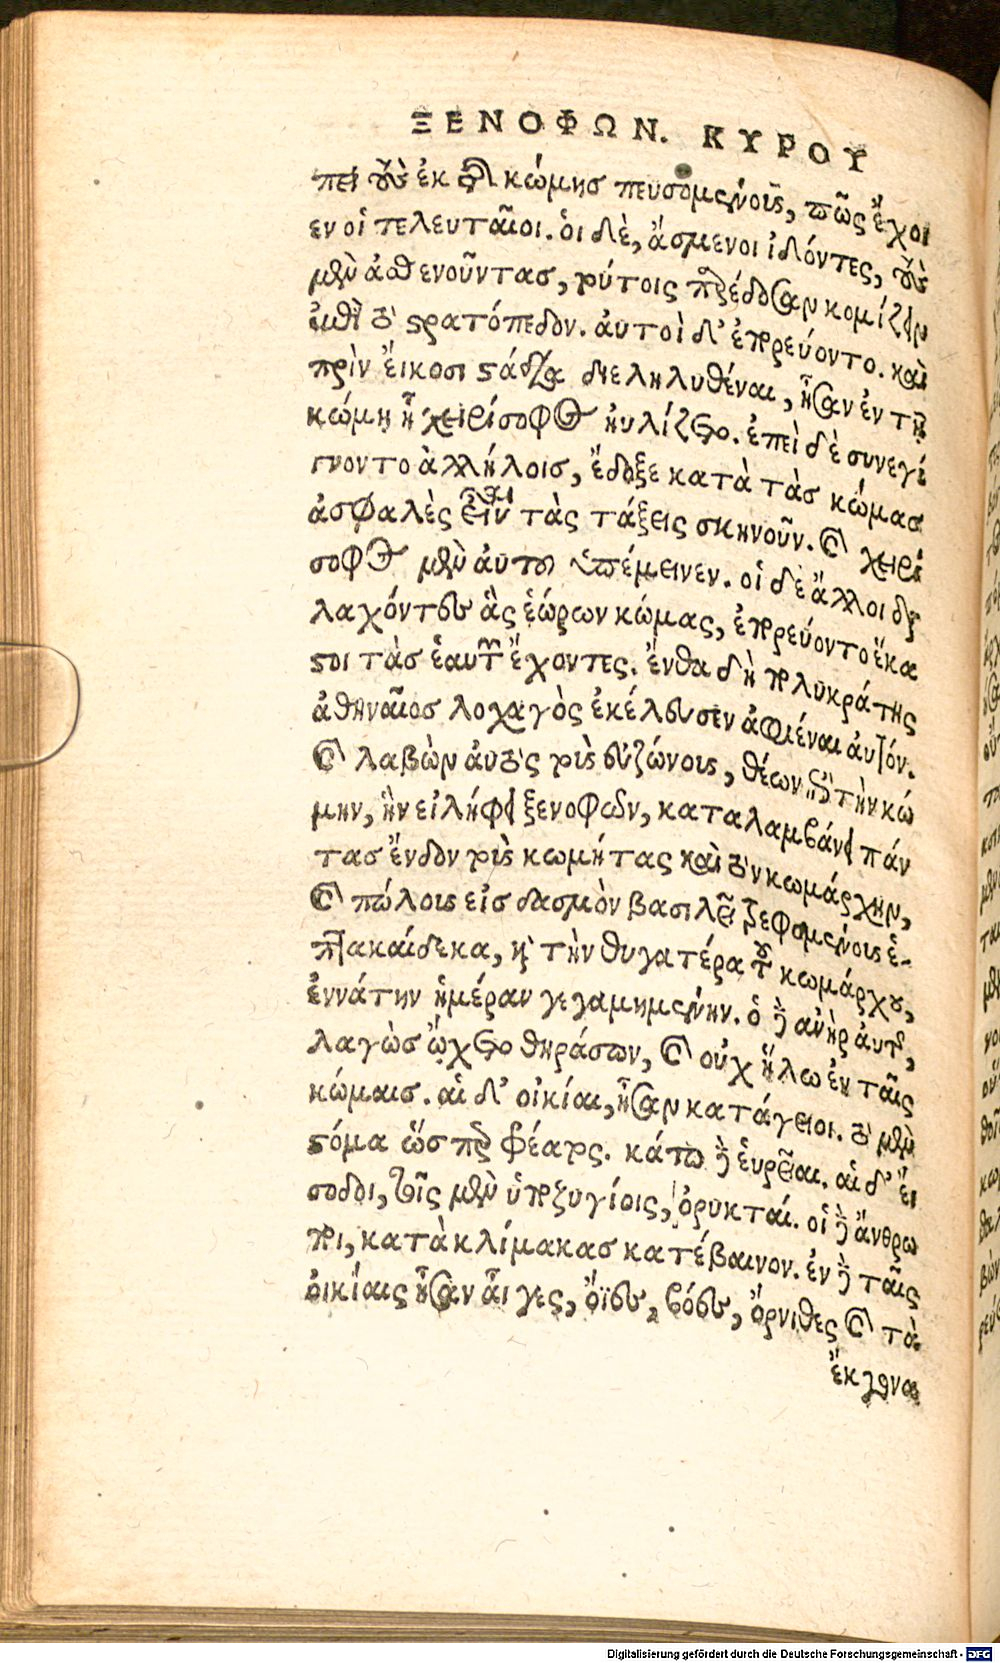 ΞΕΝΟΦΩΝ. ΚΥΡΟΥ
πει τοὺς ἐκ τῆς κώμης πευσομένους, πῶς ἔχοι
εν οἱ τελευταῖοι. ὁι δὲ, ἄσμενοι ἰδόντες, τοὺς
μὲν ἀσθενοῦντας, τούτοις παρέδοσαν κομίζειν
ἐπὶ τὸ στρατόπεδον. ἀυτοὶ δ' ἐπορεύοντο. καὶ
πρὶν ἔικοσι στάδια διεληλυθέναι, ἦσαν ἐν τῇ
κώμῃ ᾗ χειρίσοφος ηὐλίζετο. ἐπεὶ δὲ συνεγέ
γνοντο ἀλλήλοις, ἔδοξε κατὰ τὰς κώμας
ἀσφαλὲς εἶναι τὰς τάξεις σκηνοῦν. καὶ χειρί
σοφος μὲν ἀυτοῦ ὑπέμεινεν. οἱ δὲ ἄλλοι δια
λαχόντες ἃς ἑώρων κώμας, ἐπορεύοντο ἕκα
στοι τὰς ἑαυτῶν ἔχοντες. ἔνθα δὴ πολυκράτης
ἀθηναῖος λοχαγὸς ἐκέλευσεν ἀφιέναι ἀυτόν.
καὶ λαβὼν ἀυτοὺς τοὺς ἐυζώνους, θέων ἐπὶ τὴν κώ
μην, ἣν εἰλήφει ξενοφῶν, καταλαμβάνει πάν
τας ἔνδον τοὺς κωμήτας καὶ τὸν κωμάρχην,
καὶ πώλους εἰς δασμὸν βασιλεῖ τρεφομένους ἑ-
πτακαίδεκα, καὶ τὴν θυγατέρα τοῦ κωμάρχου,
ἐννάτην ἡμέραν γεγαμημένην. ὁ δὲ ἀνὴρ ἀυτῆς,
λαγὼς ᾤχετο θηράσων, καὶ οὐχ ἥλω ἐν ταῖς
κώμαις. αἱ δ' οἰκίαι, ἦσαν κατάγειοι. τὸ μὲν
στόμα ὥσπερ φέατος. κάτω δὲ ἐυρεῖαι. αἱ δ' ἔι
σοδοι, τοῖς μὲν ὑποζυγίοις, ὀρυκταί. οἱ δὲ ἄνθρω
ποι, κατὰ κλίμακας κατέβαινον. ἐν δὲ ταῖς
ὀικίαις ἦσαν ἆιγες, ὄϊες, βόες, ὄρνιθες καὶ τὰ
ἔκγονα